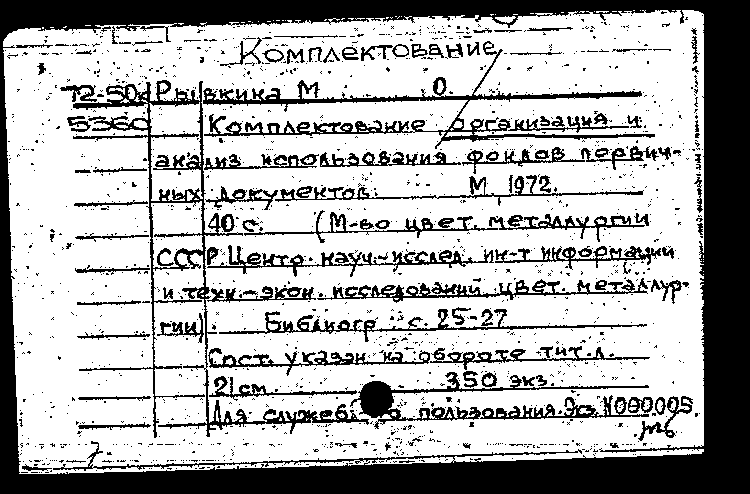 Комплектование
72-50д Рывкина М О.
5360 Комплектование, организация и
анализ использования фондов первич-
ных документов. М, 1972.
40 с. (М-во цвет. металлургии
СССР. Центр. науч.-исслед. ин-т информации
и техн.-экон. исследований цвет. металлур-
гии). Библиогр.: с. 25-27
Сост. указан на обороте тит. л.
21 см. 350 экз.
Для служебного пользования. Экз. N000005.